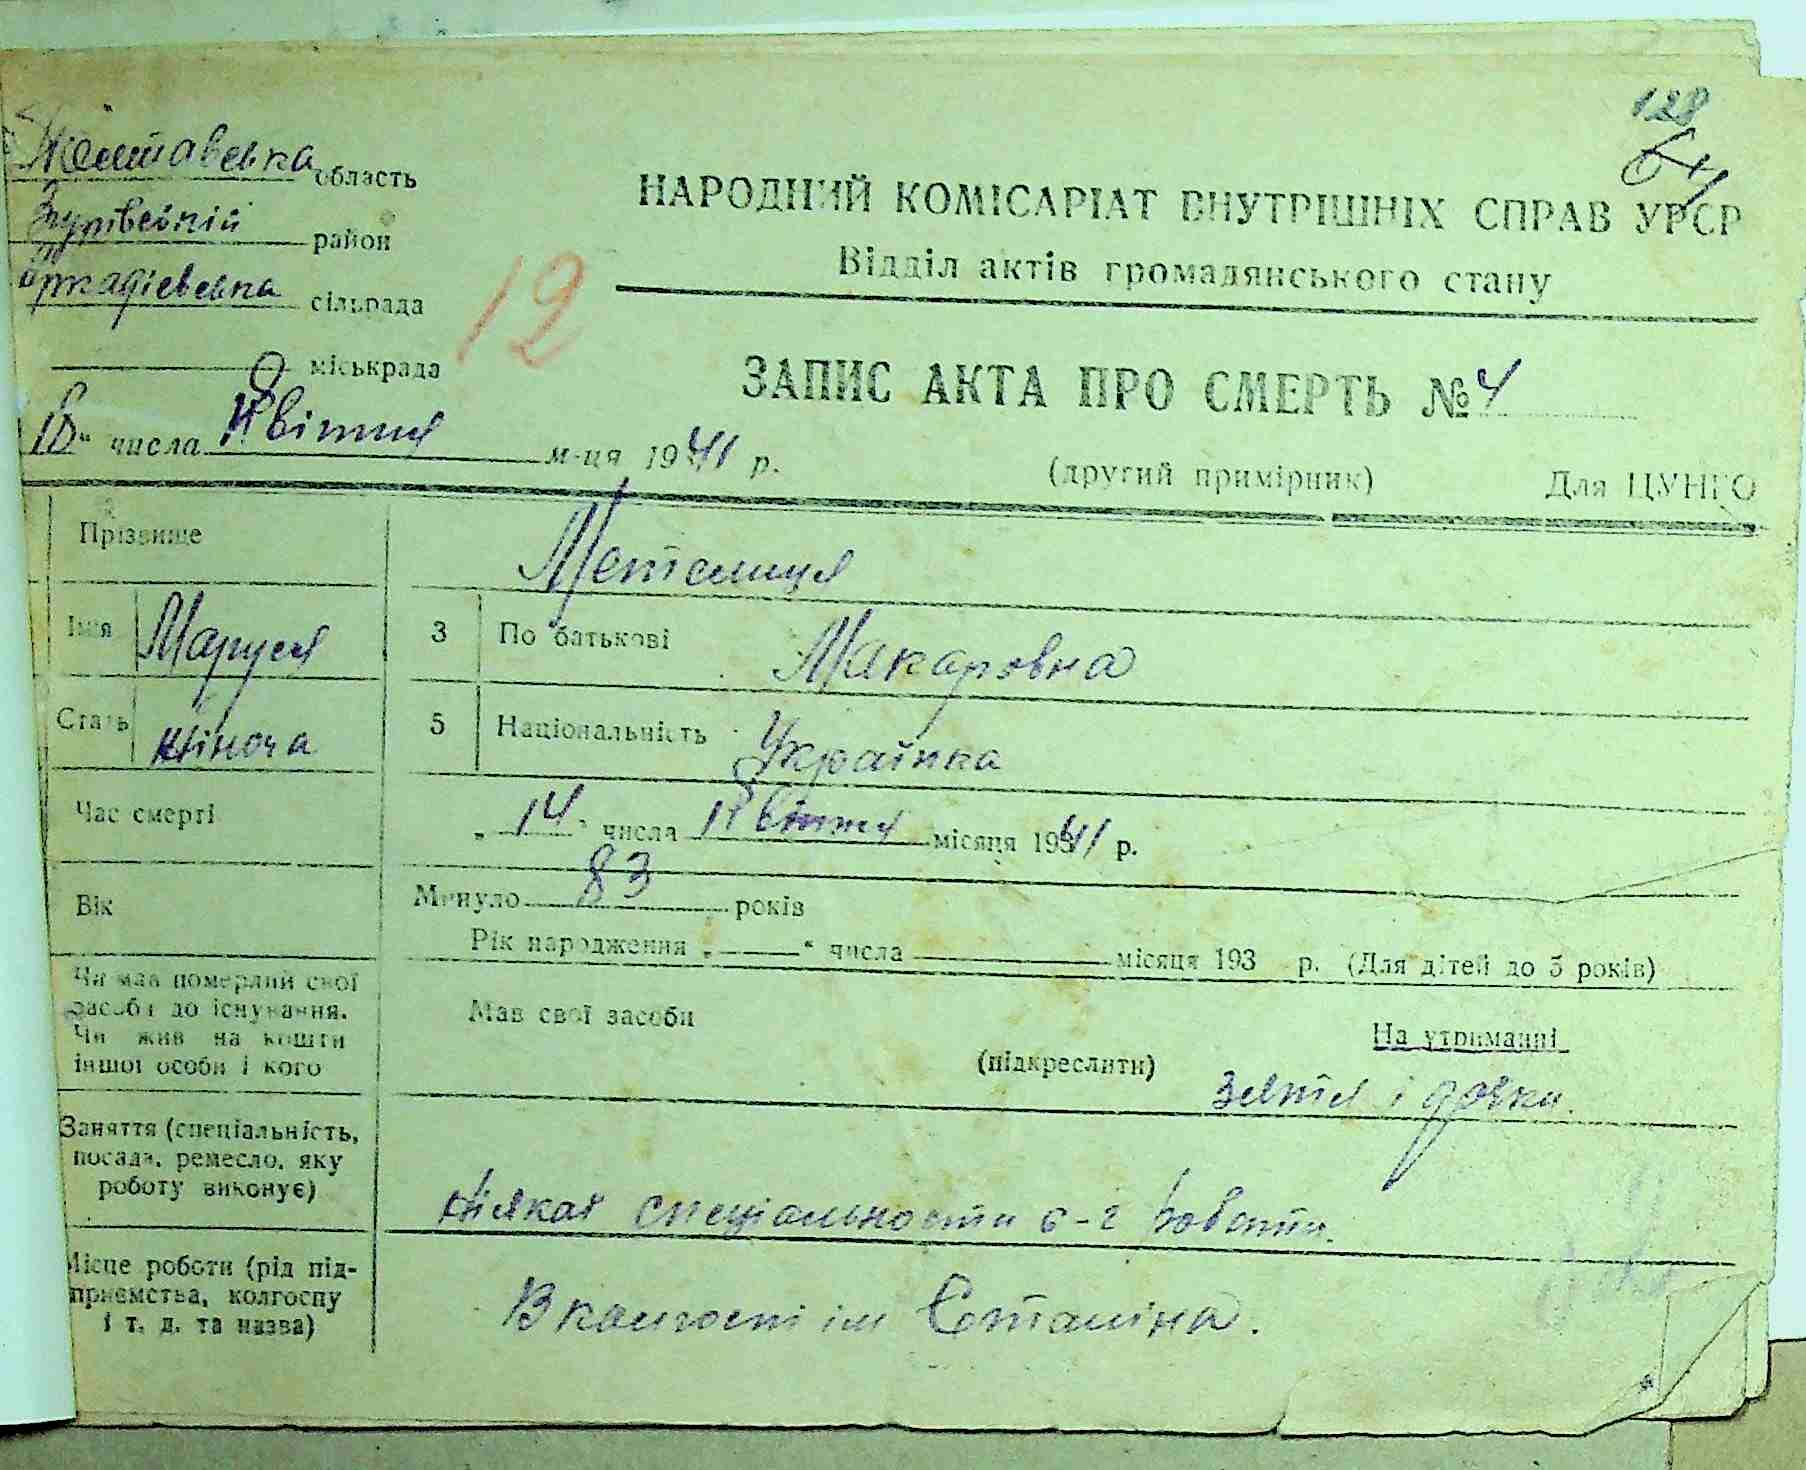 128
64
Полтавська область
Згурівський район
Аркадіевська сільрада
міськрада
12
НАРОДНИЙ КОМІСАРІАТ ВНУТРІШНІХ СПРАВ УРСР
Відділ актів громадянського стану
ЗАПИС АКТА ПРО СМЕРТЬ № 4
18 " числа Квітня м-ця 1941 р.
(другий примірник) Для ЦУНГО
Прізвище Метелиця
Імя Маруся 3 По батькові Макаровна
Стать жіноча 5 Національність Українка
Час смерті „ 14 " числа Квітня місяця 1941 р.
Вік Минуло 83 років
Рік народження „ “ числа місяця 193 р. (Для дітей до 5 років)
Чи мав померлий свої засоби до існування. Чи жив на кошти іншої особи і кого
Мав свої засоби (підкреслити) На утриманні
зятя і дочки.
Заняття (спеціальність, посада, ремесло, яку роботу виконує)
Ніякої спеціальности с-г роботи.
Місце роботи (рід підприємства, колгоспу і т. д. та назва)
В колгоспі ім Сталіна.